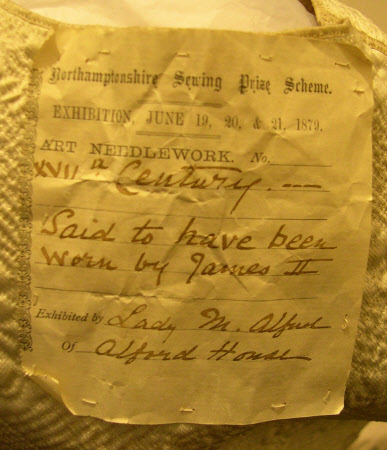 Northamptonshire Sewing Prize Scheme.
EXHIBITION, JUNE 19, 20, & 21, 1879.
ART NEEDLEWORK. No.
XVIIth Century. —
Said to have been
Worn by James II
Exhibited by Lady M. Alford
Of Alford House